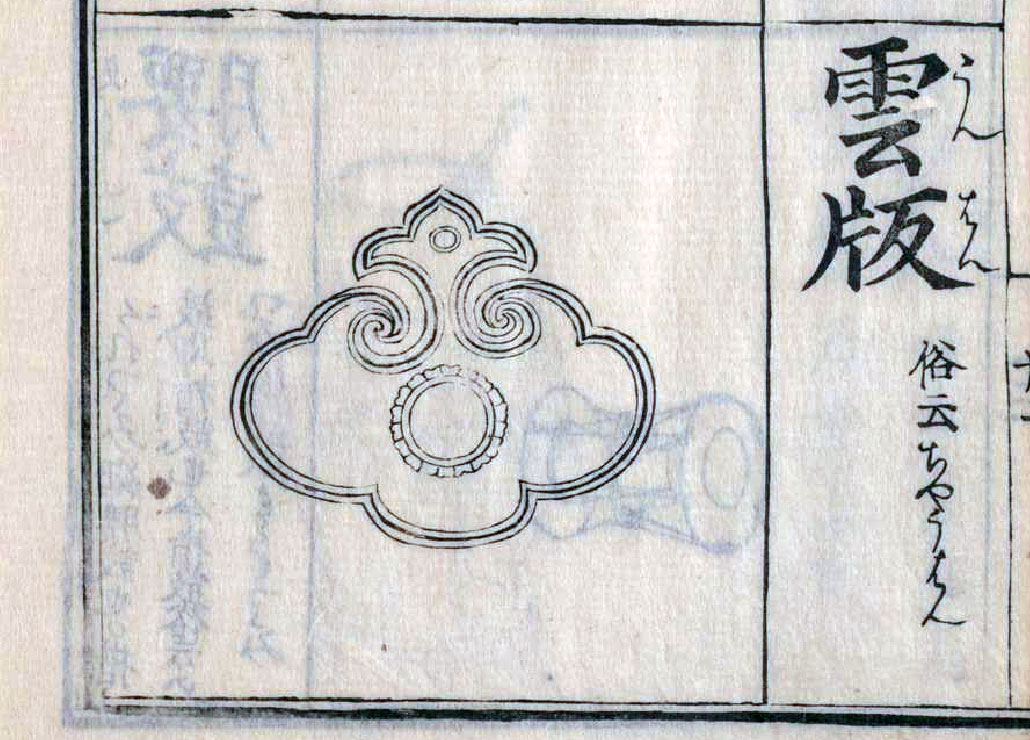 雲版
うんはん
俗云ちやうはん